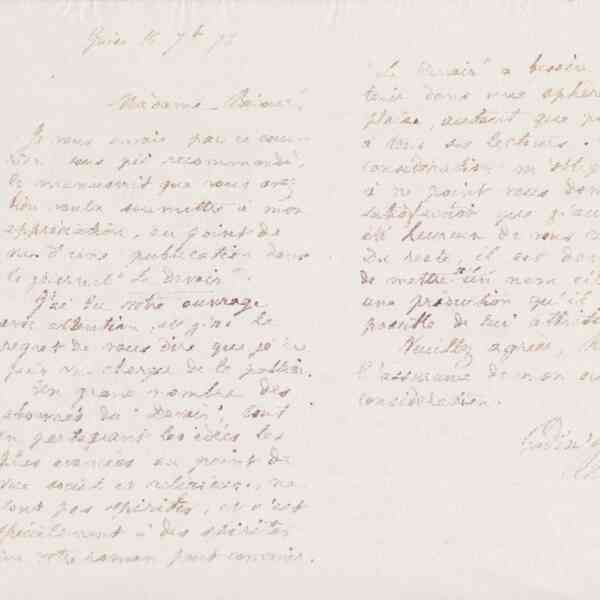 Guise 16 7bre 78
Madame
Je vous envoie par ce cour
rier sous pli recommandé,
le manuscrit que vous avez
bien voulu soumettre à mon
appréciation, au point de
vue d'une publication dans
le journal "Le Devoir".
J'ai lu votre ouvrage
avec attention, et j'ai le
regret de vous dire que je ne
puis me charger de le publier.
Un grand nombre des
abonnés du "Devoir", tout
en partageant les idées les
plus avancées au point de
vue social et religieux, ne
sont pas spirites, et c'est
spécialement à des spirites
que votre roman peut convenir.
"Le Devoir" a besoin
tenir dans une sphère
plaise, autant que
à tous ses lecteurs.
considération m'oblige
à ne point vous
satisfaction que j'au
été heureux de vous
Du reste, il est
de mettre un nom
une production qu'il
possible de lui attribu
Veuillez agréer,
l'assurance de mon
considération.
Godin